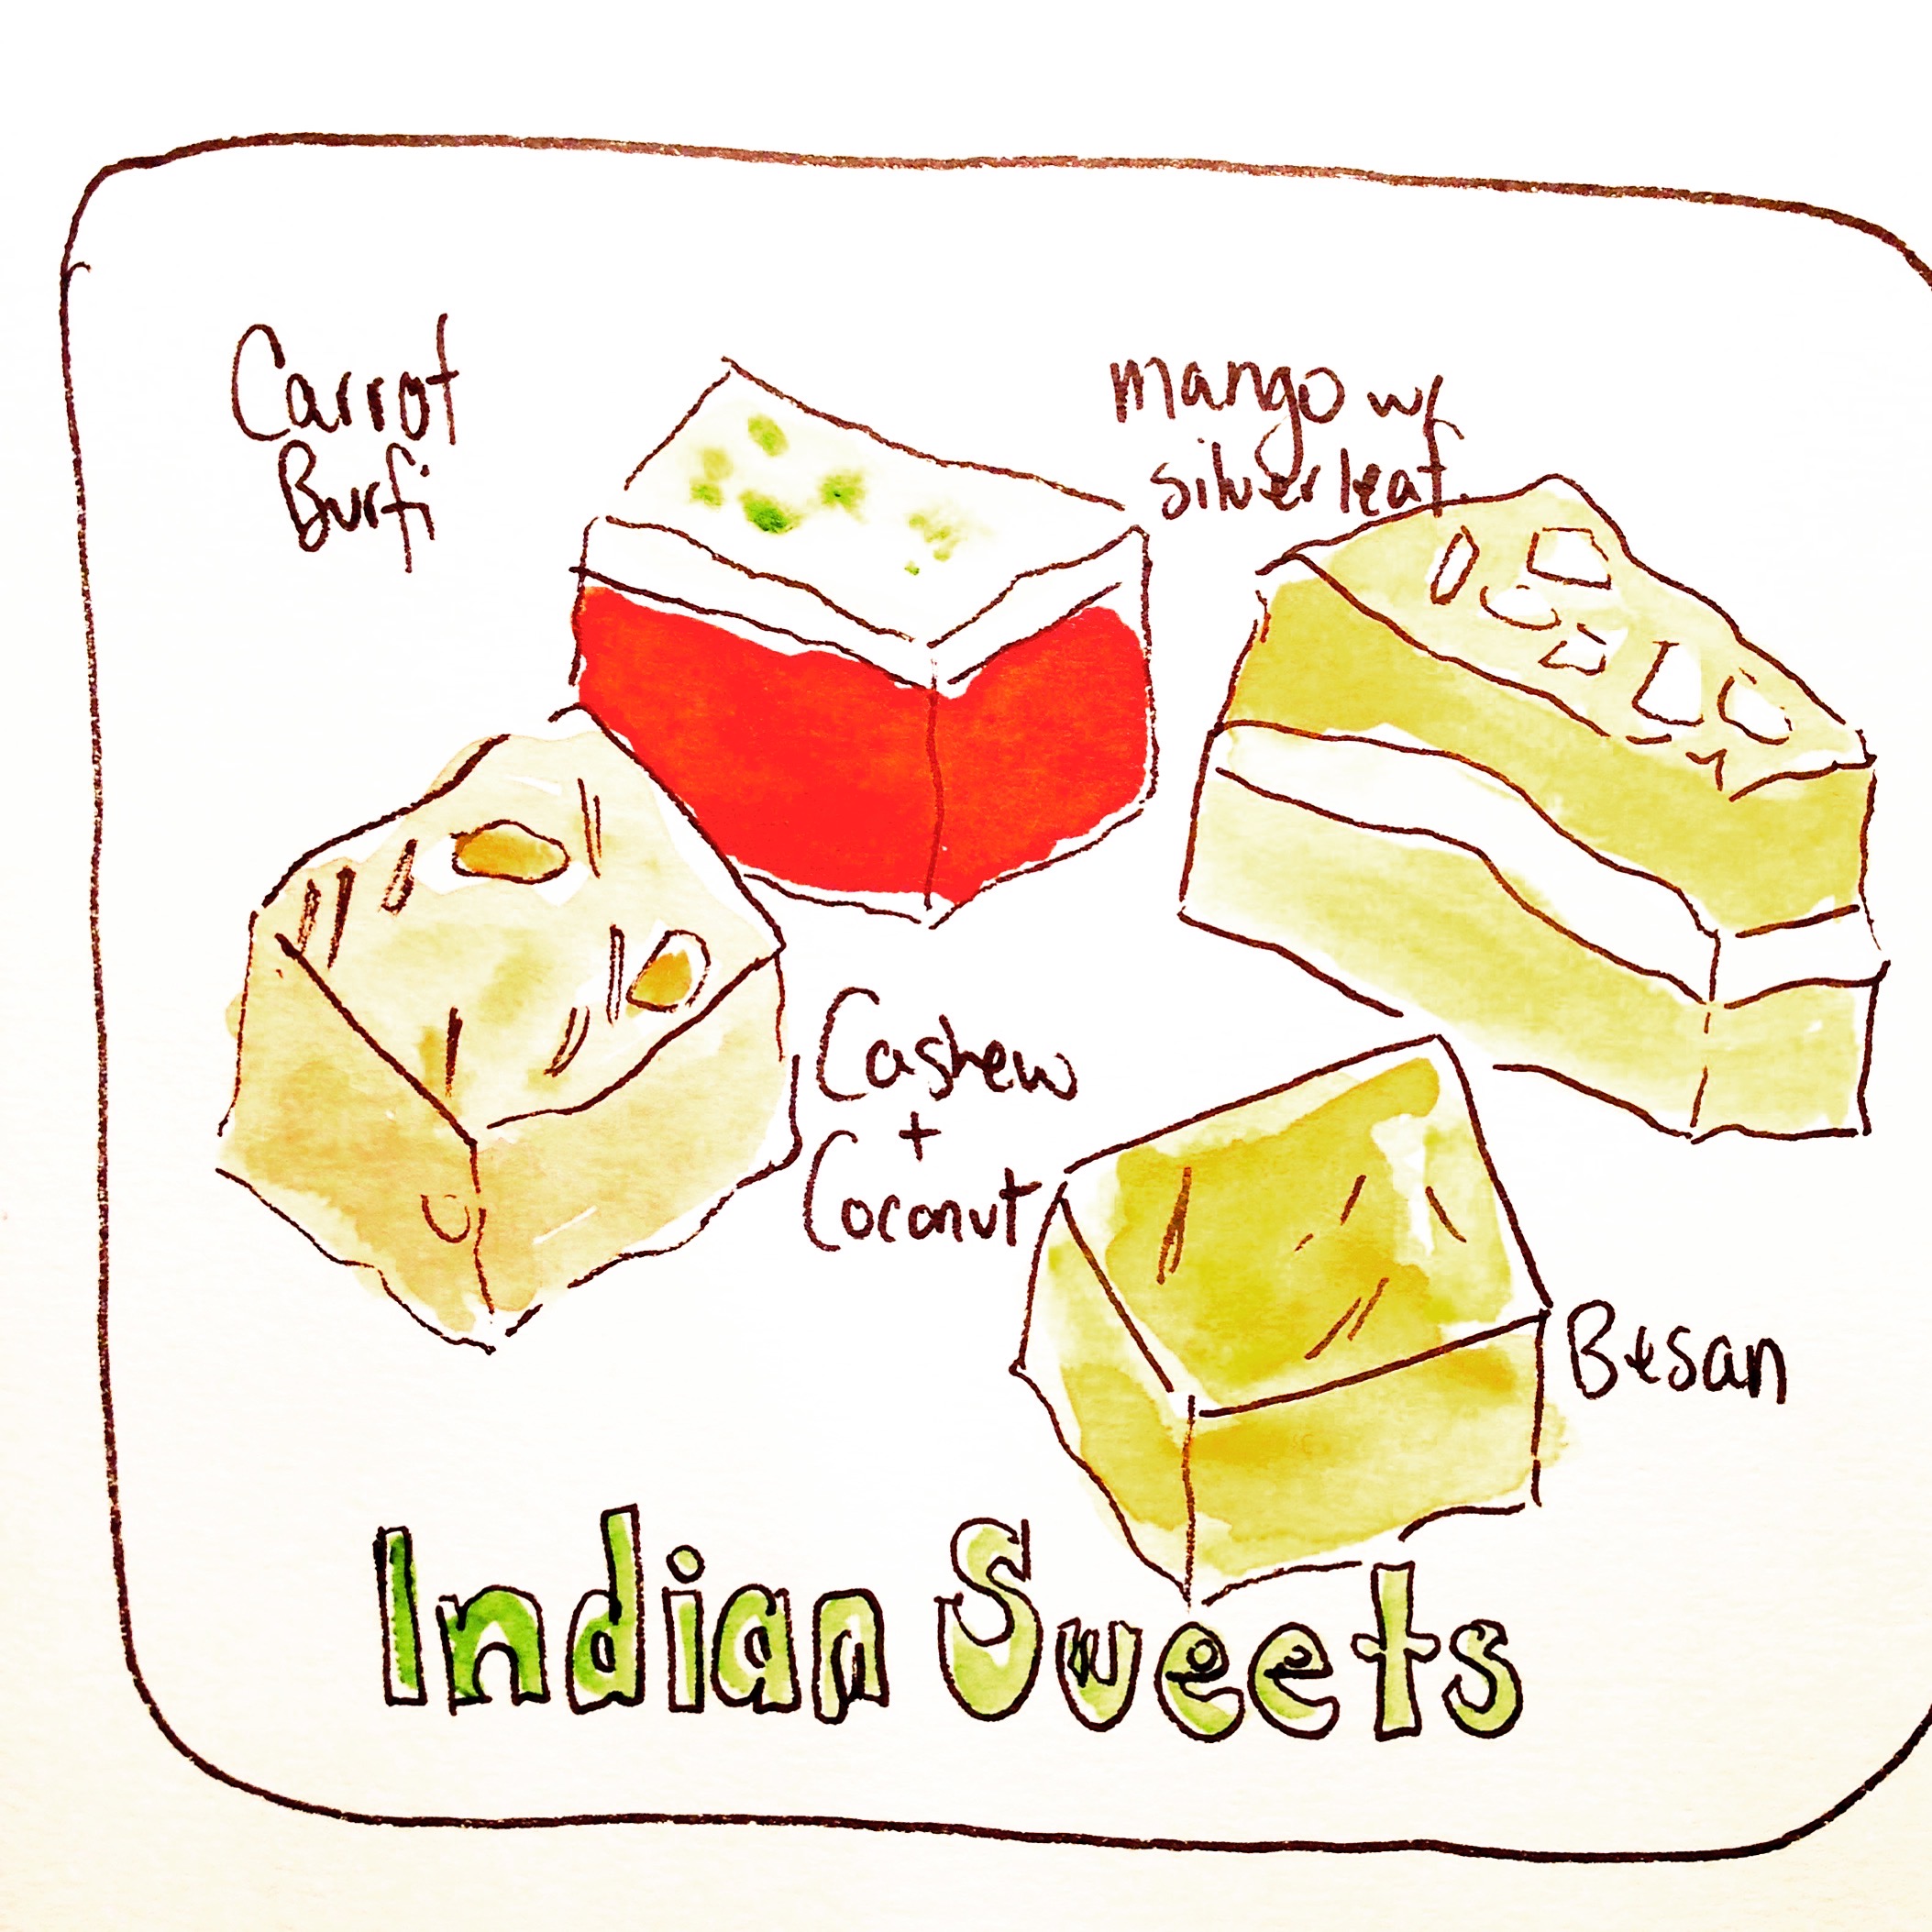 Carrot
Burfi
mango w/
silver leaf
Cashew
+
Coconut
Besan
Indian Sweets